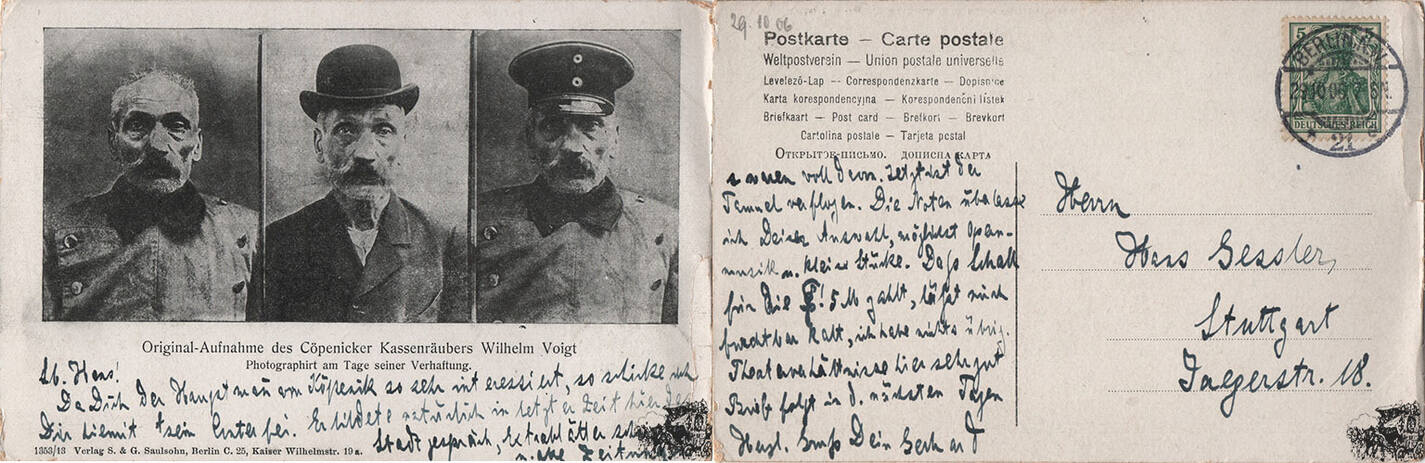 Original-Aufnahme des Cöpenicker Kassenräubers Wilhelm Voigt
Photographirt am Tage seiner Verhaftung.
Lb. Hans!
Da Dich der Hauptmann von Köpenik so sehr interessiert, so schicke ich
Dir hiermit sein Konterfei. Er bildete natürlich in letzter Zeit hier das
Stadtgespräch, Extrablätter
Zeitungen
1353/13 Verlag S. & G. Saulsohn, Berlin C. 25, Kaiser Wilhelmstr. 19 a.
29.10.06
Postkarte — Carte postale
Weltpostverein — Union postale universelle
Levelező-Lap — Correspondenzkarte — Dopisnice
Karta korespondencyjna — Korespondenční lístek
Briefkaart — Post card — Brefkort — Brevkort
Cartolina postale — Tarjeta postal
Открытое-письмо. дописна карта
waren voll davon. Jetzt ist der
Tummel verflogen. Die Noten überlasse
ich Deiner Auswahl, möglichst Opern-
musik u. kleine Stücke. Dass Schall
für Die 5 M zahlt, lässt mich
furchtbar kalt, ich habe nichts übrig.
Theaterverhältnisse hier sehr gut
Brief folgt in d. nächsten Tagen
Herzl. Gruß Dein Gerhard
5
BERLIN
29.10.06
DEUTSCHES REICH
21
Herrn
Hans Gessler,
Stuttgart
Jaegerstr. 18.